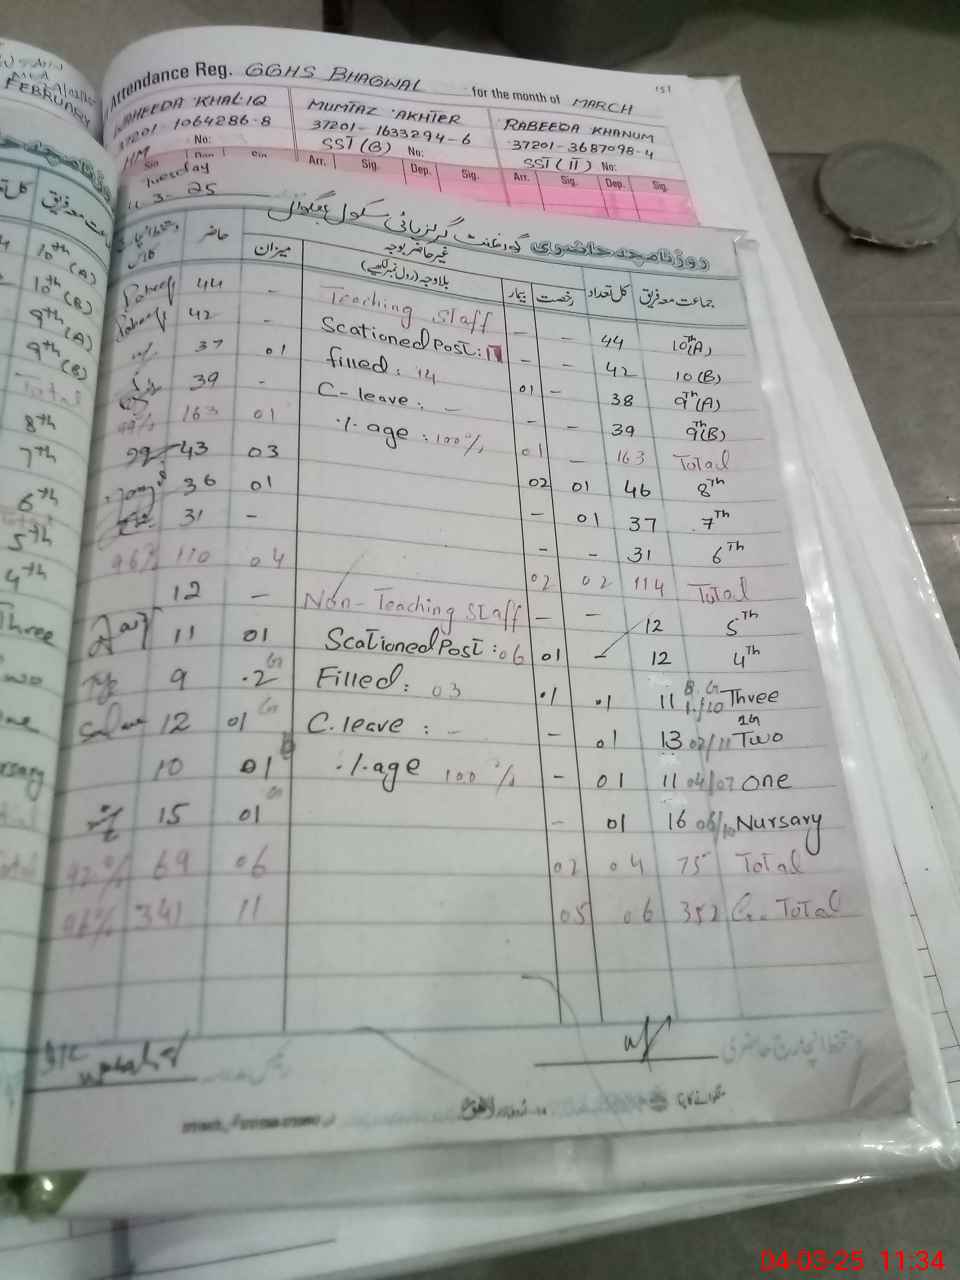 Attendance Reg. GGHS BHAGWAL for the month of MARCH
151
WAHEEDA KHALIQ
37201-1064286-8
HM No:
MUMTAZ AKHTER
37201-1633294-6
SST (B) No:
RABEEDA KHANUM
37201-3687098-4
SST (II) No:
Arr. Sig. Dep. Sig.
Arr. Sig. Dep. Sig.
Tuesday
3-25
FEBRUARY
روزنامچہ حاضری گورنمنٹ گرلز ہائی سکول بھگوال
جماعت معہ فریق کل تعداد رخصت بیمار غیر حاضر بوجہ بلاوجہ (رول نمبر لکھیے) میزان حاضر
10th (A) 44 - - Teaching Staff - 44
10 (B) 42 - - Scationed Post: - 42
9th (A) 38 - 01 filled: 14 01 37
9th (B) 39 - - C-leave: - - 39
Total 163 - 01 %age: 100% 01 163 99%
8th 46 01 02 03 43
7th 37 01 - 01 36
6th 31 - - - 31
Total 114 02 02 04 110 96%
5th 12 - - Non-Teaching Staff - 12
4th 12 - 01 Scationed Post: 06 01 11
Three 11 .01 .1 Filled: 03 .2 9
Two 13 01 - C.leave: - 01 12
one 11 04/07 01 - %age 100% 01 10
Nursary 16 06/10 01 - 01 15
Total 75 04 02 06 69 92%
G. Total 352 06 05 11 341 96%
10th (A)
10th (B)
9th (A)
9th (B)
Total
8th
7th
6th
5th
4th
Three
دستخط انچارج حاضری
04-03-25 11:34